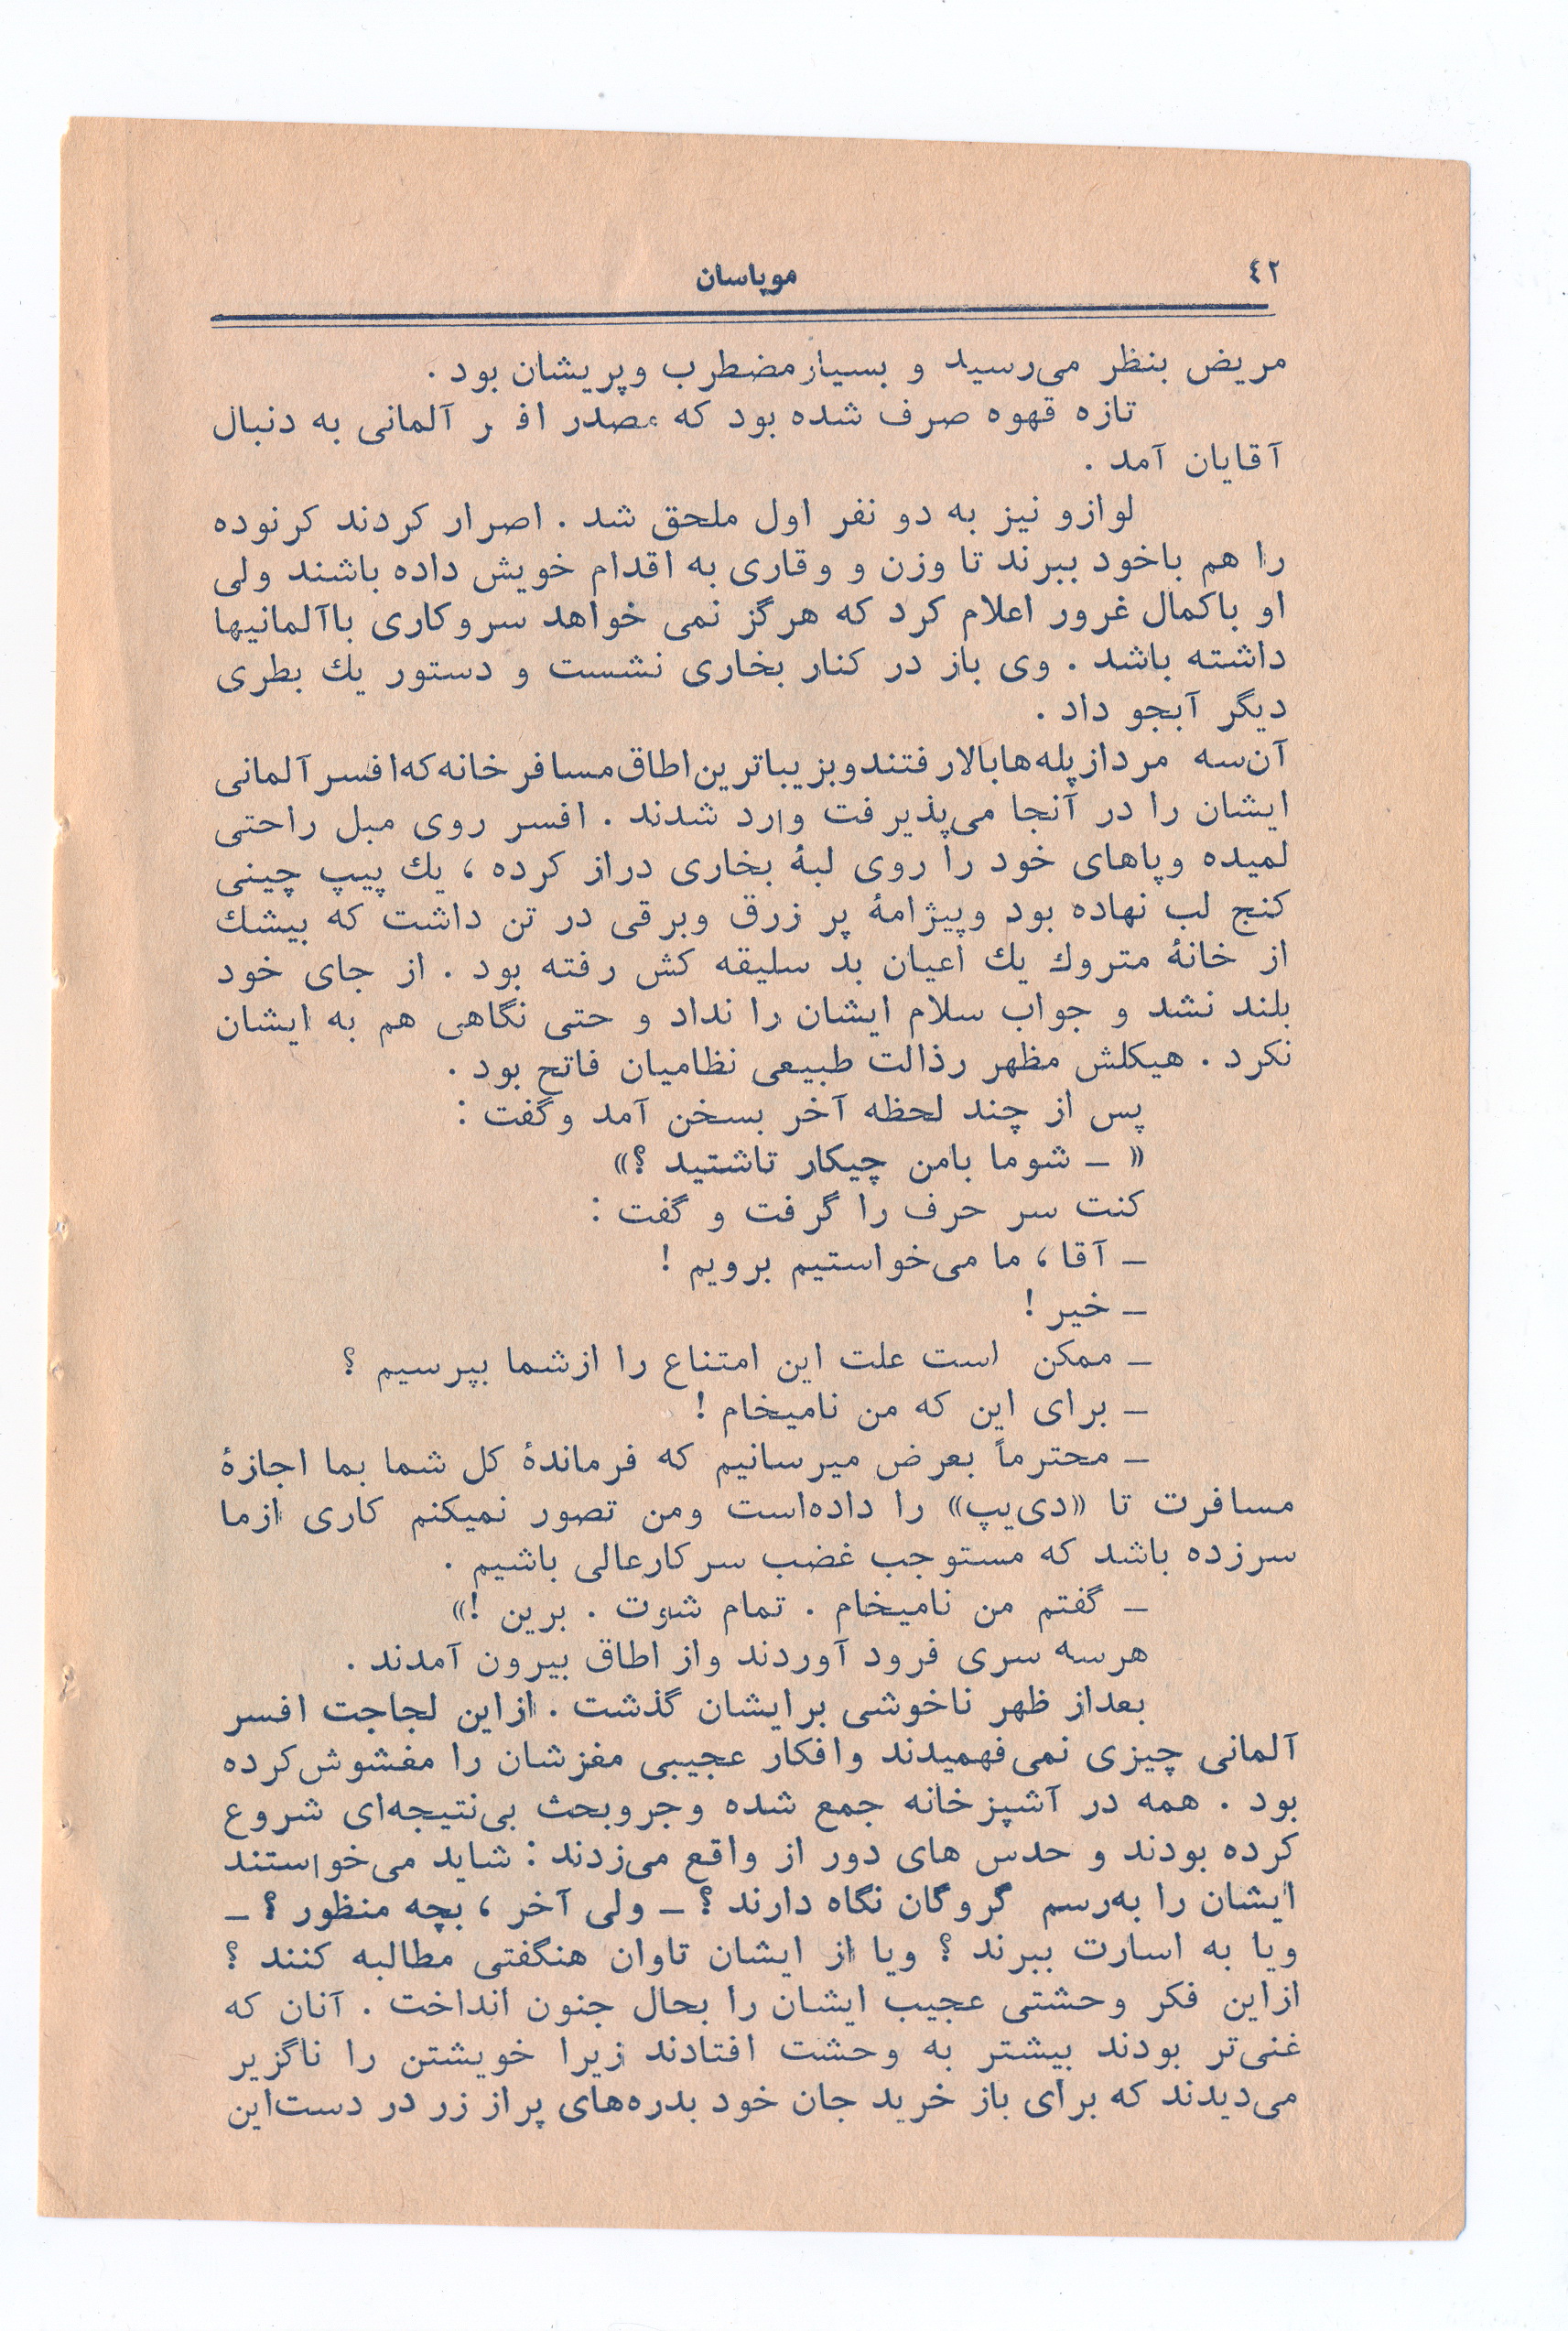 ٤٢
موپاسان
مریض بنظر می‌رسید و بسیار مضطرب وپریشان بود .
تازه قهوه صرف شده بود که مصدر افسر آلمانی به دنبال
آقایان آمد .
لوازو نیز به دو نفر اول ملحق شد . اصرار کردند کرنوده
را هم باخود ببرند تا وزن و وقاری به اقدام خویش داده باشند ولی
او باکمال غرور اعلام کرد که هرگز نمی خواهد سروکاری باآلمانیها
داشته باشد . وی باز در کنار بخاری نشست و دستور یك بطری
دیگر آبجو داد .
آن‌سه مرداز پله‌هابالارفتندوبزیباترین‌اطاق‌مسافرخانه‌که‌افسرآلمانی
ایشان را در آنجا می‌پذیرفت وارد شدند . افسر روی مبل راحتی
لمیده وپاهای خود را روی لبهٔ بخاری دراز کرده ، یك پیپ چینی
کنج لب نهاده بود وپیژامهٔ پر زرق وبرقی در تن داشت که بیشك
از خانهٔ متروك یك اعیان بد سلیقه کش رفته بود . از جای خود
بلند نشد و جواب سلام ایشان را نداد و حتی نگاهی هم به ایشان
نکرد . هیکلش مظهر رذالت طبیعی نظامیان فاتح بود .
پس از چند لحظه آخر بسخن آمد وگفت :
« – شوما بامن چیکار تاشتید ؟»
کنت سر حرف را گرفت و گفت :
– آقا ، ما می‌خواستیم برویم !
– خیر !
– ممکن است علت این امتناع را ازشما بپرسیم ؟
– برای این که من نامیخام !
– محترماً بعرض میرسانیم که فرماندهٔ کل شما بما اجازهٔ
مسافرت تا «دی‌یپ» را داده‌است ومن تصور نمیکنم کاری ازما
سرزده باشد که مستوجب غضب سرکارعالی باشیم .
– گفتم من نامیخام . تمام شوت . برین !»
هرسه سری فرود آوردند واز اطاق بیرون آمدند .
بعداز ظهر ناخوشی برایشان گذشت . ازاین لجاجت افسر
آلمانی چیزی نمی‌فهمیدند وافکار عجیبی مغزشان را مغشوش‌کرده
بود . همه در آشپزخانه جمع شده وجروبحث بی‌نتیجه‌ای شروع
کرده بودند و حدس های دور از واقع می‌زدند : شاید می‌خواستند
ایشان را به‌رسم گروگان نگاه دارند ؟ – ولی آخر ، بچه منظور ؟ –
ویا به اسارت ببرند ؟ ویا از ایشان تاوان هنگفتی مطالبه کنند ؟
ازاین فکر وحشتی عجیب ایشان را بحال جنون انداخت . آنان که
غنی‌تر بودند بیشتر به وحشت افتادند زیرا خویشتن را ناگزیر
می‌دیدند که برای باز خرید جان خود بدره‌های پراز زر در دست‌این